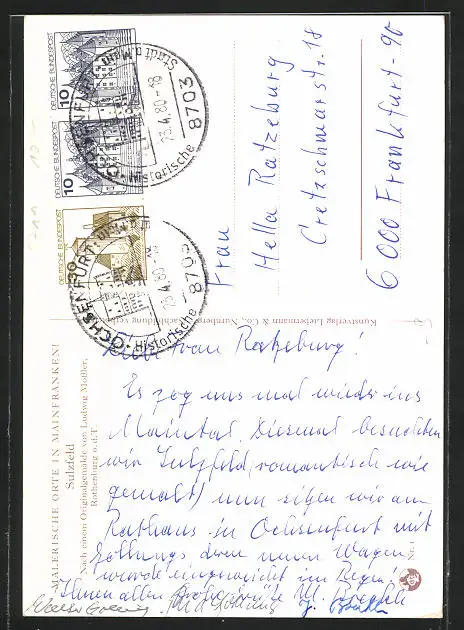 MALERISCHE ORTE IN MAINFRANKEN!
Sulzfeld
Nach einem Originalgemälde von Ludwig Moßler,
Rothenburg o.d.T.
Kunstverlag Liebermann & Co., Nürnberg
DEUTSCHE BUNDESPOST
10
DEUTSCHE BUNDESPOST
10
DEUTSCHE BUNDESPOST
30
8703 OCHSENFURT
23.4.80-18
Historische Stadt a. Main
8703 OCHSENFURT
23.4.80-18
Historische
Frau
Hella Ratzeburg
Cretzschmarstr. 18
6000 Frankfurt-90
Liebe Frau Ratzeburg!
Es zog uns mal wieder ins
Maintal. Diesmal besuchten
wir Sulzfeld, (romantisch wie
gemalt) nun sitzen wir am
Rathaus in Ochsenfurt mit
deren neuen Wagen,
wurde eingeweiht im Regen!
Ihnen allen